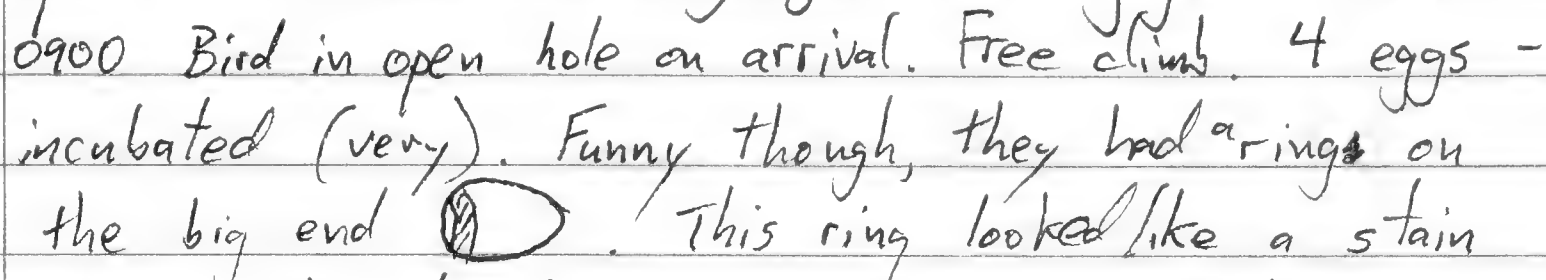 0900 Bird in open hole on arrival. Free climb. 4 eggs -
incubated (very). Funny though, they had a ring on
the big end . This ring looked like a stain